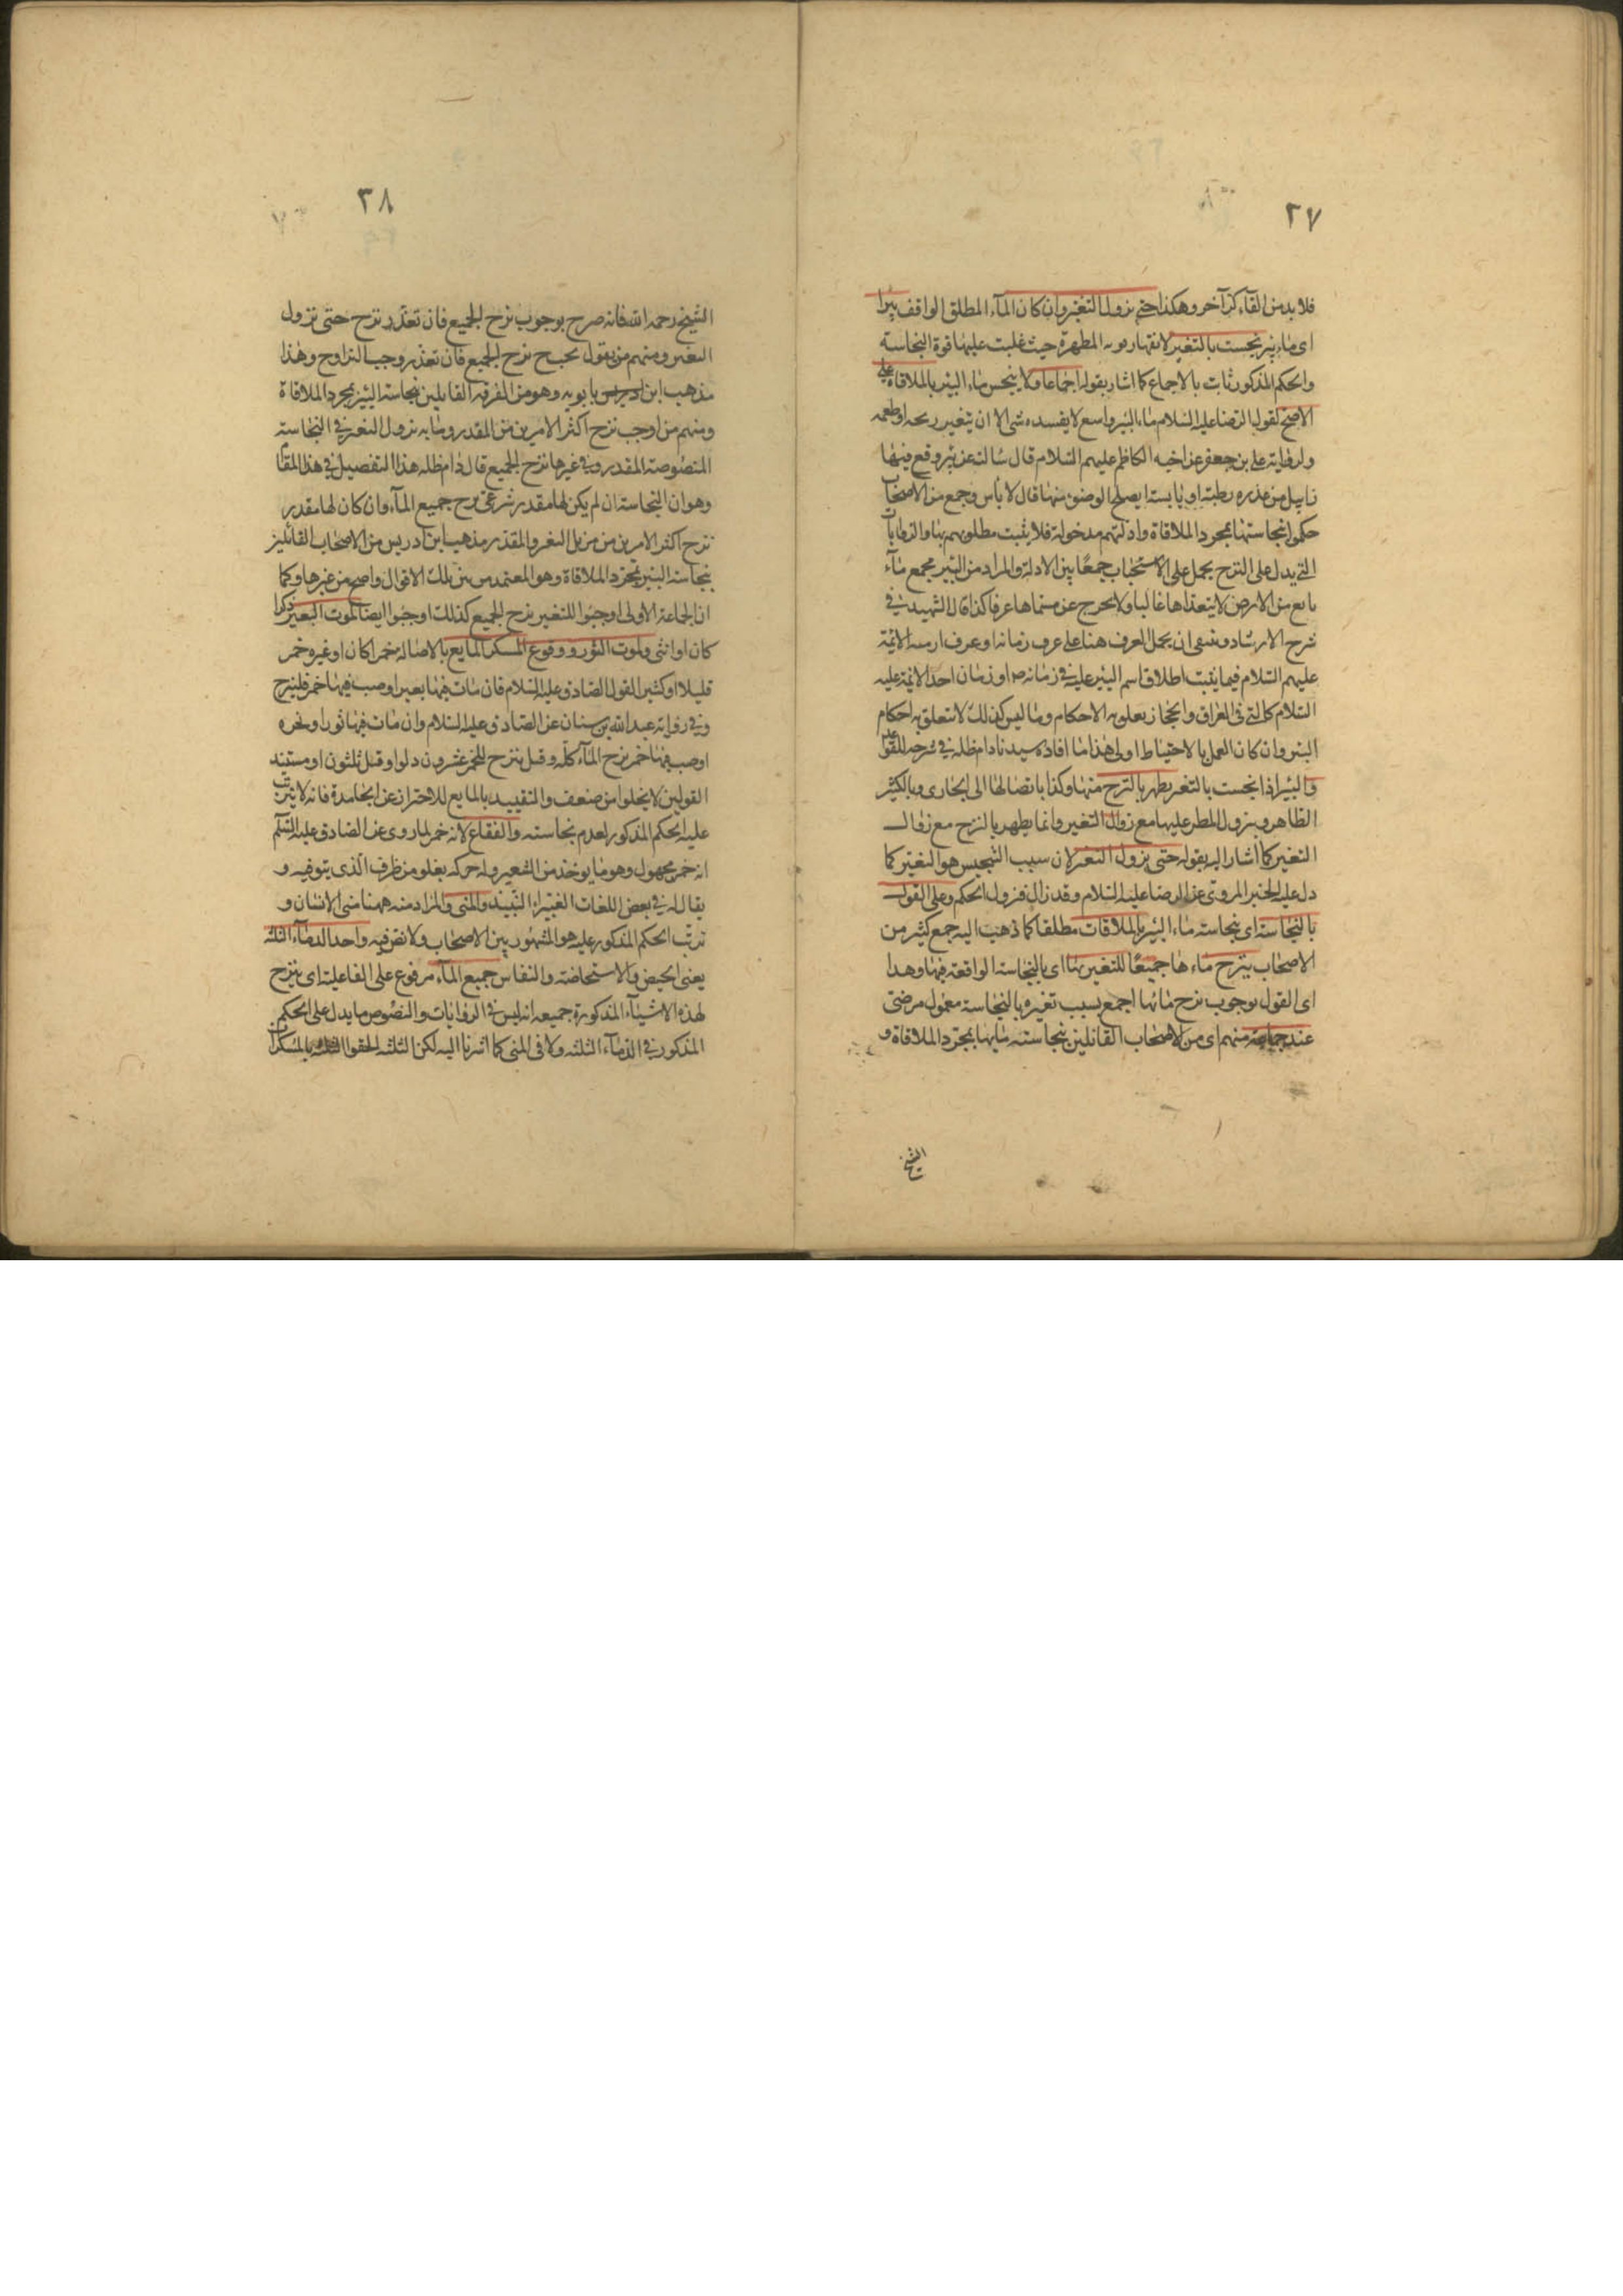 ٣٧
فلا بد من القاء كر آخر وهكذا حتى يزول التغير وان كان المآء المطلق الواقف بئرا
اى ماء بئر نجست بالتغير لانقهار قوته المطهرة حيث غلبت عليها قوة النجاسة
والحكم المذكور ثابت بالاجماع كما اشار بقوله اجماعا ولا ينجس ماء البئر بالملاقاة على
الاصح لقول الرضا عليه السلام ماء البئر واسع لا يفسده شى الا ان يتغير ريحه او طعمه
ولرواية على بن جعفر عن اخيه الكاظم عليهم السلام قال سالته عن بئر وقع فيها
زبيل من عذره رطبة او يابسة ايصلح الوضوء منها قال لا باس وجمع من الاصحاب
حكموا نجاستها بمجرد الملاقاة وادلتهم مدخولة فلا يثبت مطلوبهم بها والروايات
التى يدل على النزح يحمل على الاستحباب جمعًا بين الادلة والمراد من البئر مجمع مآء
نابع من الارض لا يتعداها غالبا ولا يخرج عن مسماها عرفا كذا قال الشهيد فى
شرح الارشاد وينبغى ان يحمل العرف هنا على عرف زمانه او عرف ازمنة الائمة
عليهم السلام فيما يثبت اطلاق اسم البئر عليه فى زمانه ص او زمان احد الائمة عليه
السلام كالتى فى العراق والحجاز يعلق به الاحكام وما ليس كذلك لا تتعلق به احكام
البئر وان كان العمل بالاحتياط اولى هذا ما افاده سيدنا دام ظله فى شرحه للقواعد
والبئر اذا نجست بالتغير يطهر بالنزح منها وكذا باتصالها الى الجارى وبالكثير
الظاهر وبنزول المطر عليها مع زوال التغير وانما يطهر بالنزح مع زوال
التغير كما اشار اليه بقوله حتى يزول التغير لان سبب التنجيس هو التغير كما
دل عليه الخبر المروى عن الرضا عليه السلام وقد زال فزول الحكم وعلى القول
بالنجاسة اى بنجاسة ماء البئر بالملاقات مطلقا كما ذهب اليه جمع كثير من
الاصحاب ينزح ماءها جميعًا للتغير بها اى بالنجاسة الواقعة فيها وهذا
اى القول بوجوب نزح مائها اجمع بسبب تغيره بالنجاسة معمول مرضى
عند جماعة منهم اى من الاصحاب القائلين بنجاسته مايها بمجرد الملاقاة و
الشيخ
٣٨
الشيخ رحمه الله فانه صرح بوجوب نزح الجميع فان تعذر نزح حتى يزول
التغير ومنهم من يقول يجب نزح الجميع فان تعذر وجب التراوح وهذا
مذهب ابن بابويه وهو من الفرقة القايلين بنجاسة البئر بمجرد الملاقاة
ومنهم من اوجب نزح اكثر الامرين من المقدر وما به يزول التغير فى النجاسة
المنصوصة المقدر وفى غيرها نزح الجميع قال دام ظله هذا التفصيل فى هذا المقام
وهو ان النجاسة ان لم يكن لها مقدر شرعى نزح جميع المآء وان كان لها مقدر
نزح اكثر الامرين من مزيل التغير والمقدر مذهب ابن ادريس من الاصحاب القائلين
بنجاسة البئر بمجرد الملاقاة وهو المعتمد من بين تلك الاقوال واصح من غيرها وكما
ان الجماعة الاولى اوجبوا للتغير نزح الجميع كذلك اوجبوا ايضا لموت البعير ذكرا
كان او انثى ولموت الثور ووقوع المسكر المايع بالاصالة خمرا كان او غيره خمر
قليلا او كثيرا لقول الصادق عليه السلام فان مات فيها بعير او صب فيها خمر فلينزح
وفى رواية عبد الله بن سنان عن الصادق عليه السلام وان مات فيها ثور او نحوه
او صب فيها خمر نزح المآء كله وقيل ينزح للخمر عشرون دلوا وقيل ثلثون او مستند
القولين لا يخلوا من ضعف والتقييد بالمايع للاحتراز عن الجامدة فانه لا يترتب
عليه الحكم المذكور لعدم نجاسته والفقاع لانه خمر لما روى عن الصادق عليه السلم
انه خمر مجهول وهو ما يوخذ من الشعير وله حركة يغلو من ظرف الذى يتو فيه و
يقال له فى بعض اللغات الغبيراء النبيذ والمنى والمراد منه ههنا منى الانسان و
ترتب الحكم المذكور عليه هو المشهور بين الاصحاب ولا نص فيه واحد الدمآء الثلثه
يعنى الحيض والاستحاضة والنفاس جميع المآء مرفوع على الفاعلية اى ينزح
لهذه الاشيآء المذكورة جميعه انه ليس فى الروايات والنصوص ما يدل على الحكم
المذكور فى الدمآء الثلثه ولا فى المنى كما اشرنا اليه لكن الثلثه الحقوا بالمسكرات